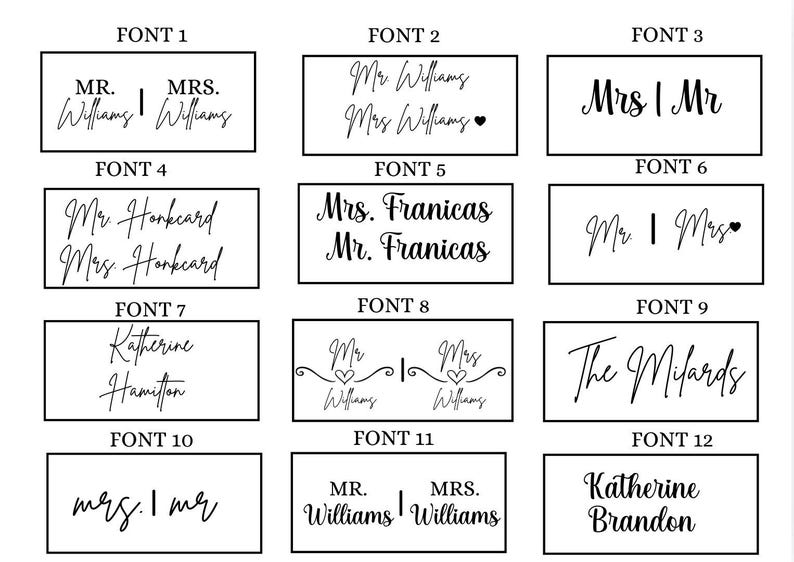 FONT 1
MR. | MRS.
Williams Williams
FONT 2
Mr. Williams
Mrs Williams ♥
FONT 3
Mrs | Mr
FONT 4
Mr. Honkcard
Mrs. Honkcard
FONT 5
Mrs. Franicas
Mr. Franicas
FONT 6
Mr. | Mrs.♥
FONT 7
Katherine
Hamilton
FONT 8
Mr | Mrs
Williams Williams
FONT 9
The Milards
FONT 10
mrs. | mr
FONT 11
MR. | MRS.
Williams Williams
FONT 12
Katherine
Brandon